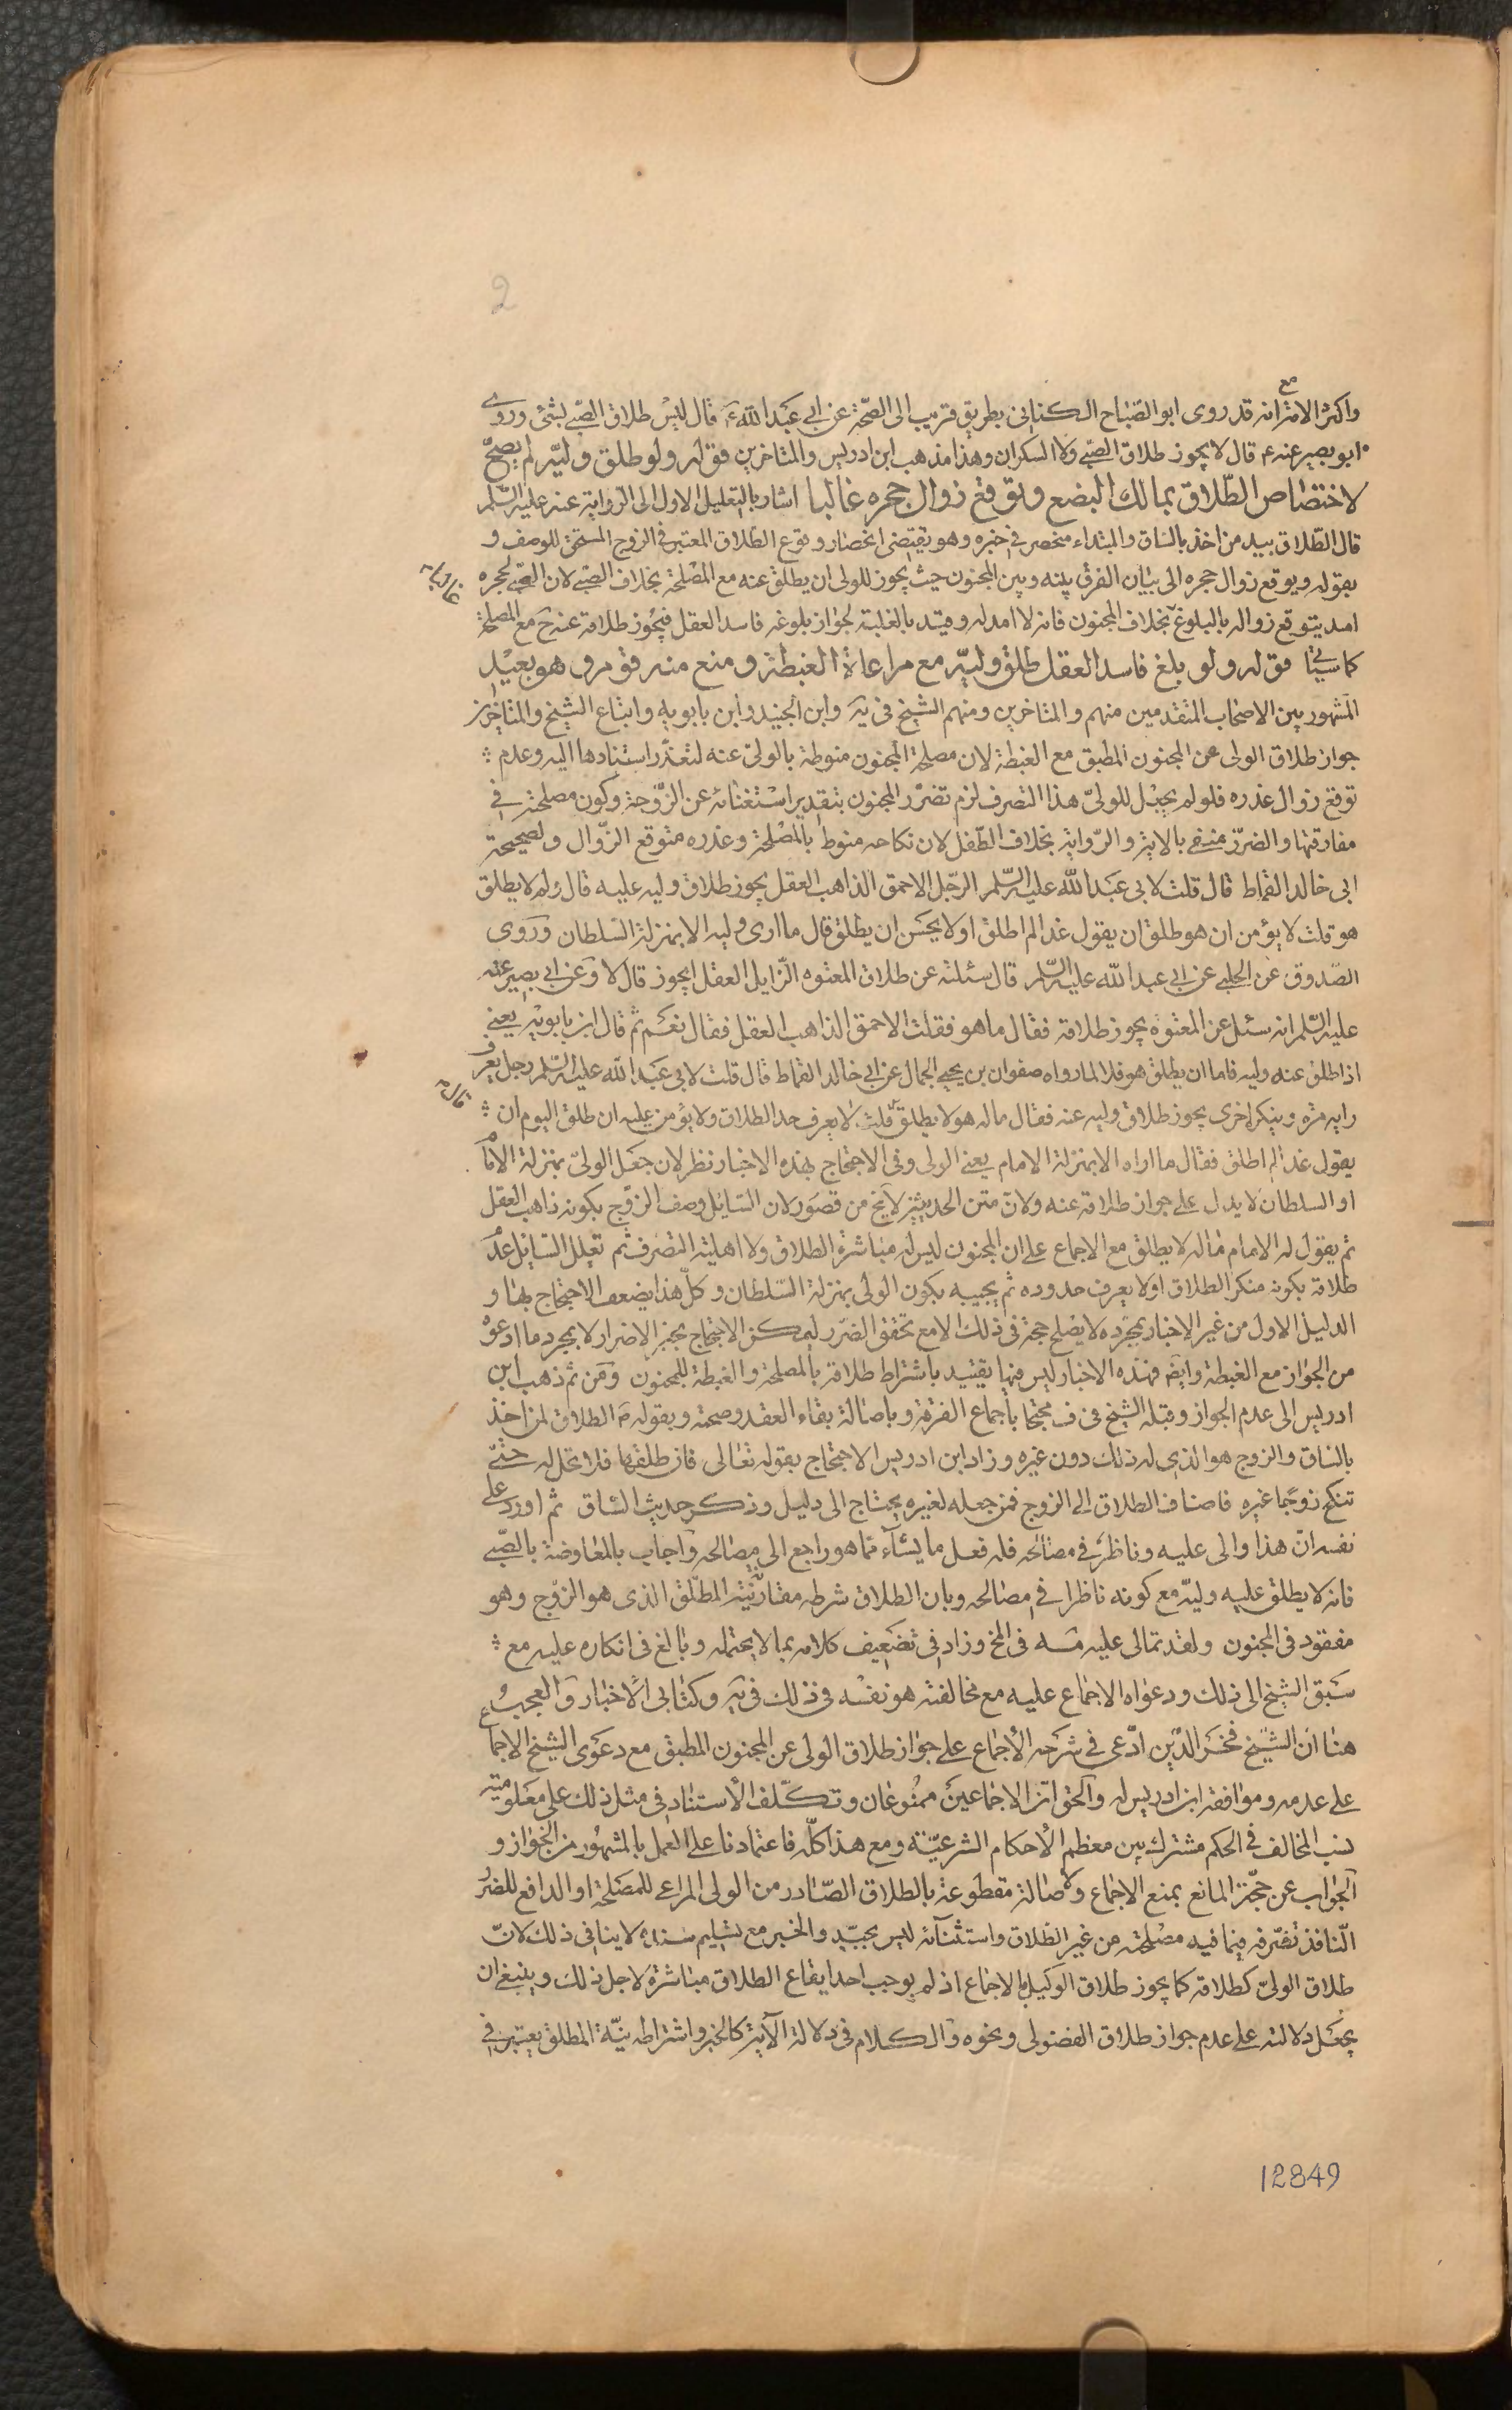 2
مع
واكثر الامر انه قد روى ابو الصّباح الكنانى بطريق قريب الى الصّحّة عن ابى عَبَد اللّه ع قال ليْس طلاق الصّبى بشئ وروى
ابو بصير عنه ع قال لا يجوز طلاق الصبى ولا السكران وهذا مذهب ابن ادريس والمتاخرين قوله ولو طلق وليّه لم يصحّ
لاختصاص الطّلاق بمالك البضع وتوقع زوال حجره غالبا اشار بالتعليل الاول الى الرواية عنه عليه السّلم
قال الطّلاق بيد من اخذ بالساق والمبتداء منحصر فى خبره وهو يقتضى انحصار وقوع الطلاق المعتبر فى الزوج المستحق للوصف و
بقوله ويوقع زوال حجره الى بيان الفرق بينه وبين المجنون حيث يجوز للولى ان يطلق عنه مع المصْلحة بخلاف الصبى لان الصّبى لحجره
امد يتوقع زواله بالبلوغ بخلاف المجنون فانه لا امد له وقيّد بالغلبة لجواز بلوغه فاسد العقل فيجُوز طلاقه عنه ح مع المصلحة
كما سيأتى قوله ولو بلغ فاسد العقل طلق وليّه مع مراعاة الغبطة ومنع منه قوم وهو بعيْد
المشهور بين الاصْحاب المتقدمين منهم والمتاخرين ومنهم الشيخ فى يَه وابن الجنيد وابن بابويه واتباع الشيخ والمتاخرين
جواز طلاق الولى عن المجنون المطبق مع الغبطة لان مصلحة المجنون منوطة بالولىّ عنه لتعذّر استنادها اليه وعدم
توقع زوال عذره فلو لم يجعْل للولىّ هذا التصرف لزم تضرّر المجنون بتقدير اسْتغنائه عن الزّوجة وكون مصلحته فى
مفارقتها والضرر منفى بالاية والرّواية بخلاف الطّفل لان نكاحه منوط بالمصْلحة وعذره متوقع الزّوال ولصحيحة
ابى خالد القماط قال قلت لابى عَبَد اللّه عليه السّلم الرجّل الاحمق الذاهب العقل يجوز طلاق وليه عليه قال ولم لا يطلق
هو قلت لا يؤمن ان هو طلق ان يقول غدا لم اطلق اولا يحسَن ان يطلق قال ما ارى وليه الا بمنزلة السّلطان وروى
الصّدوق عَن الحلبى عن ابى عبد اللّه عليه السّلم قال سئلته عن طلاق المعتوه الزّايل العقل ايجوز قال لا وعن ابى بصير عنه
عليه السّلم انه سئل عن المعتوه يجوز طلاقه فقال ما هو فقلت الاحمق الذاهب العقل فقال نعَم ثم قال ابن بابويه يعنى
اذا طلق عنه وليه فاما ان يطلق هو فلا لما رواه صفوان بن يحيى الجمال عن ابى خالد القماط قال قلت لابى عَبَد اللّه عليه السّلم رجل يعرف
رايه مرّة وينكر اخرى يجوز طلاق وليه عنه فقال ماله هو لا يطلق قلت لا يعرف حد الطلاق ولا يؤمن عليه ان طلق اليوم ان
قال
يقول غدا لم اطلق فقال ما اراه الا بمنزلة الامام يعنى الولى وفى الاحتجاج بهذه الاخبار نظر لان جعَل الولىّ بمنزلة الامام
او السلطان لا يدل على جواز طلاقه عنه ولانّ متن الحديثين لا يخ من قصور لان السّائل وصف الزوّج بكونه ذاهب العقل
ثم يقول له الامام ماله لا يطلق مع الاجماع على ان المجنون ليس له مباشرة الطلاق ولا اهلية التصرف ثم تعلل السّائل عدم
طلاقه بكونه منكر الطلاق او لا يعرف حدوده ثم يجيبه بكون الولى بمنزلة السّلطان وكلّ هذا يضعف الاحتجاج بها و
الدليل الاول من غير الاخبار بمجرّده لا يصْلح حجة فى ذلك الا مع تحقق الضّرر ليمكن الاحتجاج بخبر الاضرار لا بمجرد ما ادعوْه
من الجواز مع الغبطة وايضَ فهذه الاخبار ليس فيها تقييد باشتراط طلاقه بالمصلحة والغبطة للمجنون ومَن ثم ذهب ابن
ادريس الى عدم الجواز وقبله الشيخ فى ف محتجا باجماع الفرقة وباصالة بقاء العقد وصحته وبقوله ع الطلاق لمن اخذ
بالساق والزوج هو الذى له ذلك دون غيره وزاد ابن ادريس الاحتجاج بقوله تعالى فان طلقها فلا تحل له حتّى
تنكح زوجًا غيره فاضاف الطلاق الى الزوج فمن جعله لغيره يحتاج الى دليل وذكر حديث السّاق ثم اورد على
نفسه انّ هذا والى عليه وناظر فى مصالحه فله فعل ما يشآء مما هو راجع الى مصالحه واجاب بالمعاوضة بالصّبى
فانه لا يطلق عليه وليّه مع كونه ناظرا فى مصالحه وبان الطلاق شرطه مقارنة نيّة المطلّق الذى هو الزوْج وهو
مفقود فى المجنون ولقد تمالى عليه مه فى المخ وزاد فى تضَعيف كلامه بما لا يحتمله وبالغ فى انكاره عليه مع
سَبق الشيخ الى ذلك ودعواه الاجماع عليه مع مخالفته هو نفسْه فى ذلك فى يَه وكتابى الاخبار والعجب و
هنا ان الشيَخ فخَر الدّين ادّعى فى شرَحه الأجماع على جواز طلاق الولى عن المجنون المطبق مع دعَوى الشيخ الاجماع
على عدمه وموافقة ابن ادريس له والحق انّ الاجماعَين ممنُوعان وتكلّف الأستناد فى مثل ذلك على معلومية
نسب المخالف فى الحكم مشترك بين معظم الأحكام الشرعيّة ومع هذا كلّه فاعتمادنا على العمل بالمشهُور من الجواز و
الجواب عن حجّة المانع بمنع الاجماع والاصالة مقطوعة بالطلاق الصّادر من الولى المراعى للمصَلحة او الدافع للضرر
النّافذ تصّرفه فيما فيه مصْلحته من غير الطّلاق واستثنآئه ليس بجيّد والخبر مع تسْليم سنده لا ينافى ذلك لانّ
طلاق الولىّ كطلاقه كما يجوز طلاق الوكيل بالاجماع اذ لم يوجب احد ايقاع الطلاق مباشرة لاجل ذلك وينبغى ان
يجعَل دلالته على عدم جواز طلاق الفضولى ونحوه والكلام فى دلالة الآية كالخبر واشتراطه نيّة المطلق يعتبر فى
12849